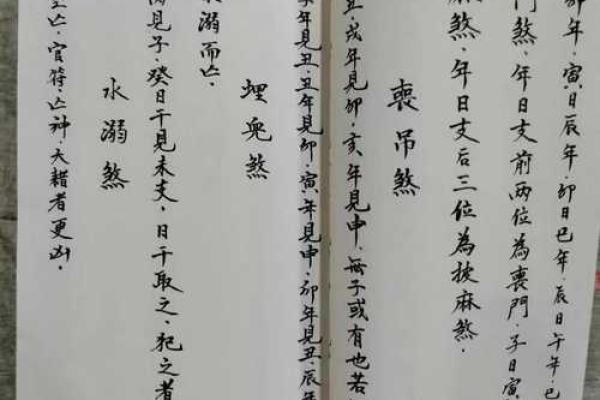 卯年，寅日辰年，卯日巳年，辰日午年，巳
門煞，年日支前两位為喪門，子日寅
麻煞，年日支后三位為披麻煞．
喪吊煞
丑，戌年見卯，亥年見申，無子或有也若
年見丑，丑年見卯，寅年見申，卯年見丑，辰年
埋兒煞
溺而亡．
見子，癸日干見未支，日干取之，犯之者
水溺煞
亡，官符，亡神，大耗者更凶．